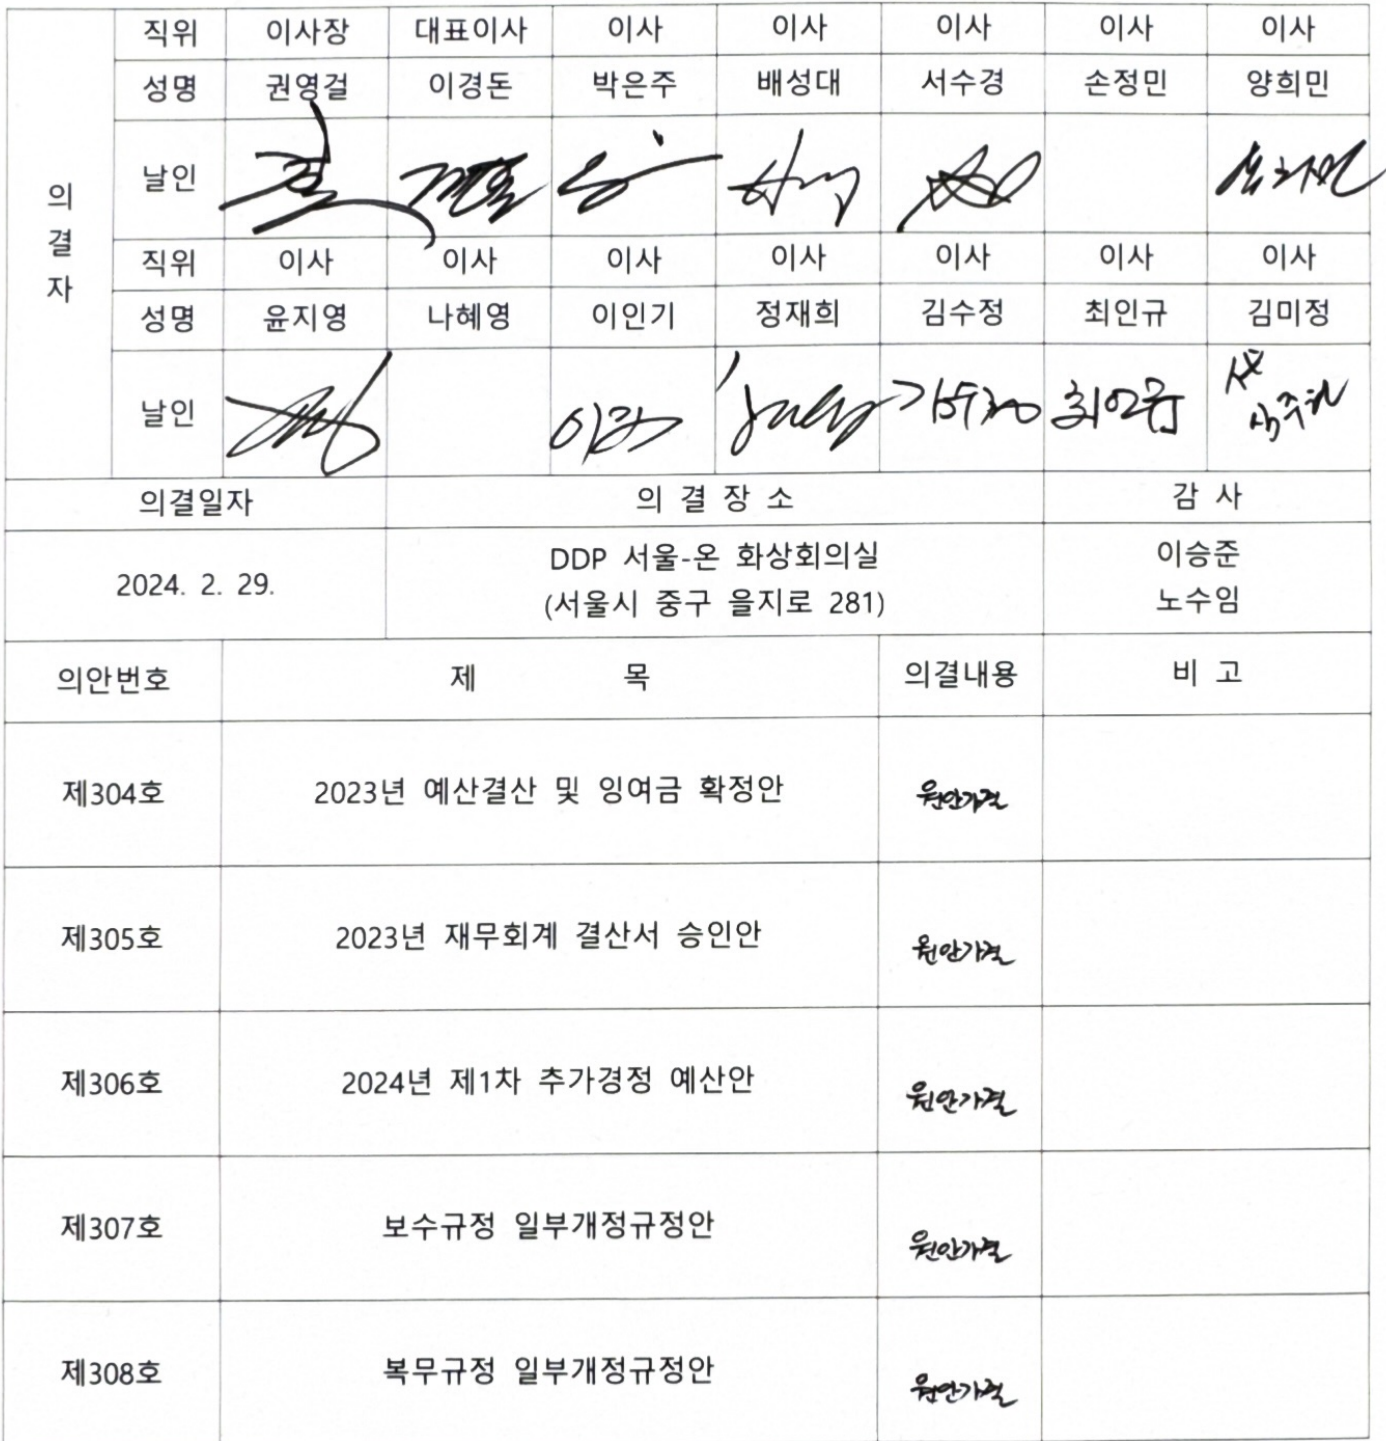 직위 이사장 대표이사 이사 이사 이사 이사 이사
성명 권영걸 이경돈 박은주 배성대 서수경 손정민 양희민
의결자
날인
직위 이사 이사 이사 이사 이사 이사 이사
성명 윤지영 나혜영 이인기 정재희 김수정 최인규 김미정
날인 김수정 최인규
의결일자 의 결 장 소 감 사
DDP 서울-온 화상회의실 이승준
2024. 2. 29.
(서울시 중구 을지로 281) 노수임
의안번호 제 목 의결내용 비 고
제304호 2023년 예산결산 및 잉여금 확정안 원안가결
제305호 2023년 재무회계 결산서 승인안 원안가결
제306호 2024년 제1차 추가경정 예산안 원안가결
제307호 보수규정 일부개정규정안 원안가결
제308호 복무규정 일부개정규정안 원안가결